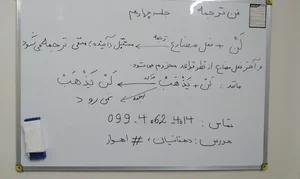 فن ترجمه جلسه چهاردهم
لَنْ + فعل مضارع ترجمه مستقبل (آینده) منفی ترجمه می‌شود
و آخر فعل مضارع از نظر قواعد مجزوم می‌شود.
مانند: لَنْ + یَذْهَبُ لَنْ یَذْهَبَ
نمی‌رود
تماس: 099.4.62.4.14
مدرس: دهقانیان، # اهواز